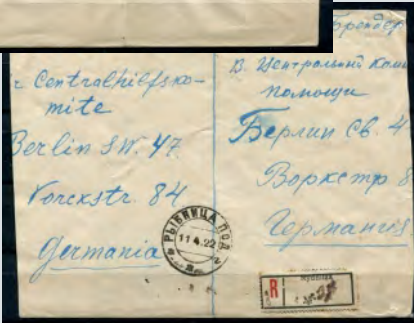 Centralhilfsko-
mite
Berlin SW. 47
Yorckstr. 84
Germania
В. Центральный
помощи
Берлин СВ. 4
Воркстр 8
Германия
РЫБНИЦА ПОД
11 4 22
R